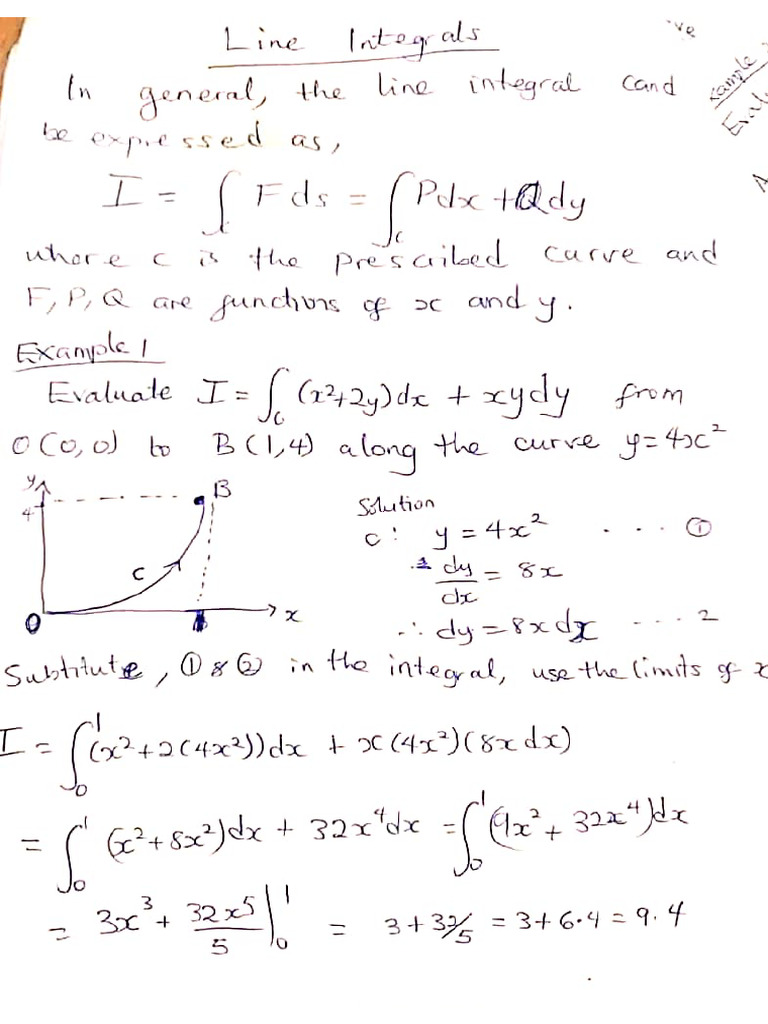 Line Integrals
've
In general, the line integral cand
be expressed as,
I = ∫ F ds = ∫_c Pdx + Qdy
where c is the prescribed curve and
F, P, Q are functions of x and y.
Example 1
Evaluate I = ∫_c (x²+2y)dx + xydy from
O(0,0) to B(1,4) along the curve y=4x²
y
4
B
C
O
x
Solution
c: y = 4x² .... ①
dy/dx = 8x
∴ dy = 8x dx .... 2
Substitute, ① & ② in the integral, use the limits of x
I = ∫₀¹ (x²+2(4x²))dx + x(4x²)(8x dx)
= ∫₀¹ (x²+8x²)dx + 32x⁴dx = ∫₀¹ (9x² + 32x⁴)dx
= 3x³ + 32x⁵/5 |₀¹ = 3 + 32/5 = 3+6.4 = 9.4